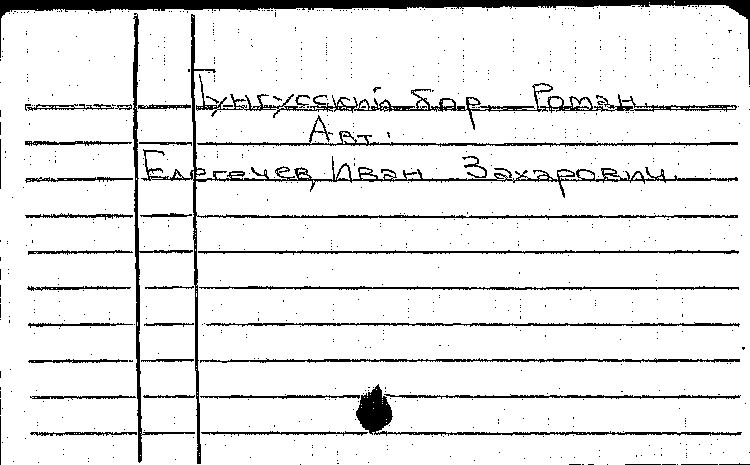 Тунгусский бор. Роман.
Авт.:
Елегечев, Иван Захарович.